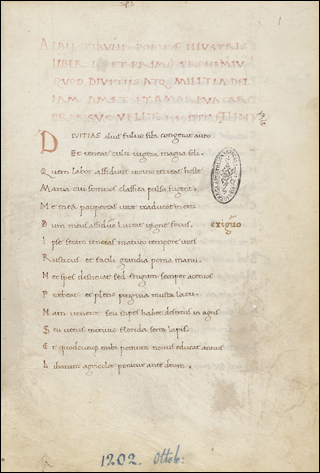 ALBII TIBULLI POETAE ILLUSTRIS
LIBER
QUOD DIVITIIS ATQ; MILITIA
IAM AMET ET AMORI
DIVITIAS alius fuluo sibi congerat auro
Et teneat culti iugera magna soli.
Quem labor assiduus uicino terreat hoste
Martia cui somnos classica pulsa fugent.
Me mea paupertas uitae traducat inerti
Dum meus assiduo luceat igne focus.
exiguo
Ipse seram teneras maturo tempore uites
Rusticus et facili grandia poma manu.
Nec spes destituat sed frugum semper aceruos
Praebeat et pleno pinguia musta lacu.
Nam ueneror seu stipes habet desertus in agris
Seu uetus in triuio florida serta lapis.
Et quodcunq; mihi pomum nouus educat annus
Libatum agricolae ponitur ante deum.
1202. Ottob: